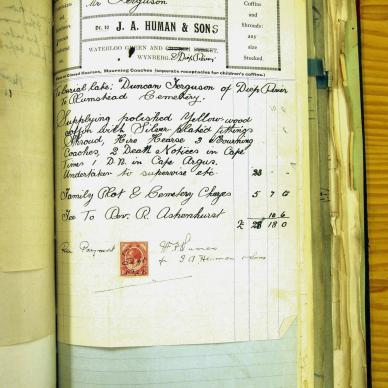 Mr Ferguson
Coffins
and
Shrouds,
any
size
Stocked.
Dr. to J. A. HUMAN & SONS
WATERLOO GREEN AND
WYNBERG. & Diep River
Closed Hearses, Mourning Coaches (separate receptacles for children's coffins.)
Burial late: Duncan Ferguson of Diep River
To Plumstead Cemetery.
Supplying polished Yellow wood
coffin with Silver plated fittings
Shroud, Hire Hearse 3 Mourning
Coaches, 2 Death Notices in Cape
Times 1 D.N. in Cape Argus.
Undertaker to supervise etc.
Family Plot & Cemetery Charges 5 7 6
Fee To Rev. R. Ashenhurst 10 6
£ 18 0
Payment